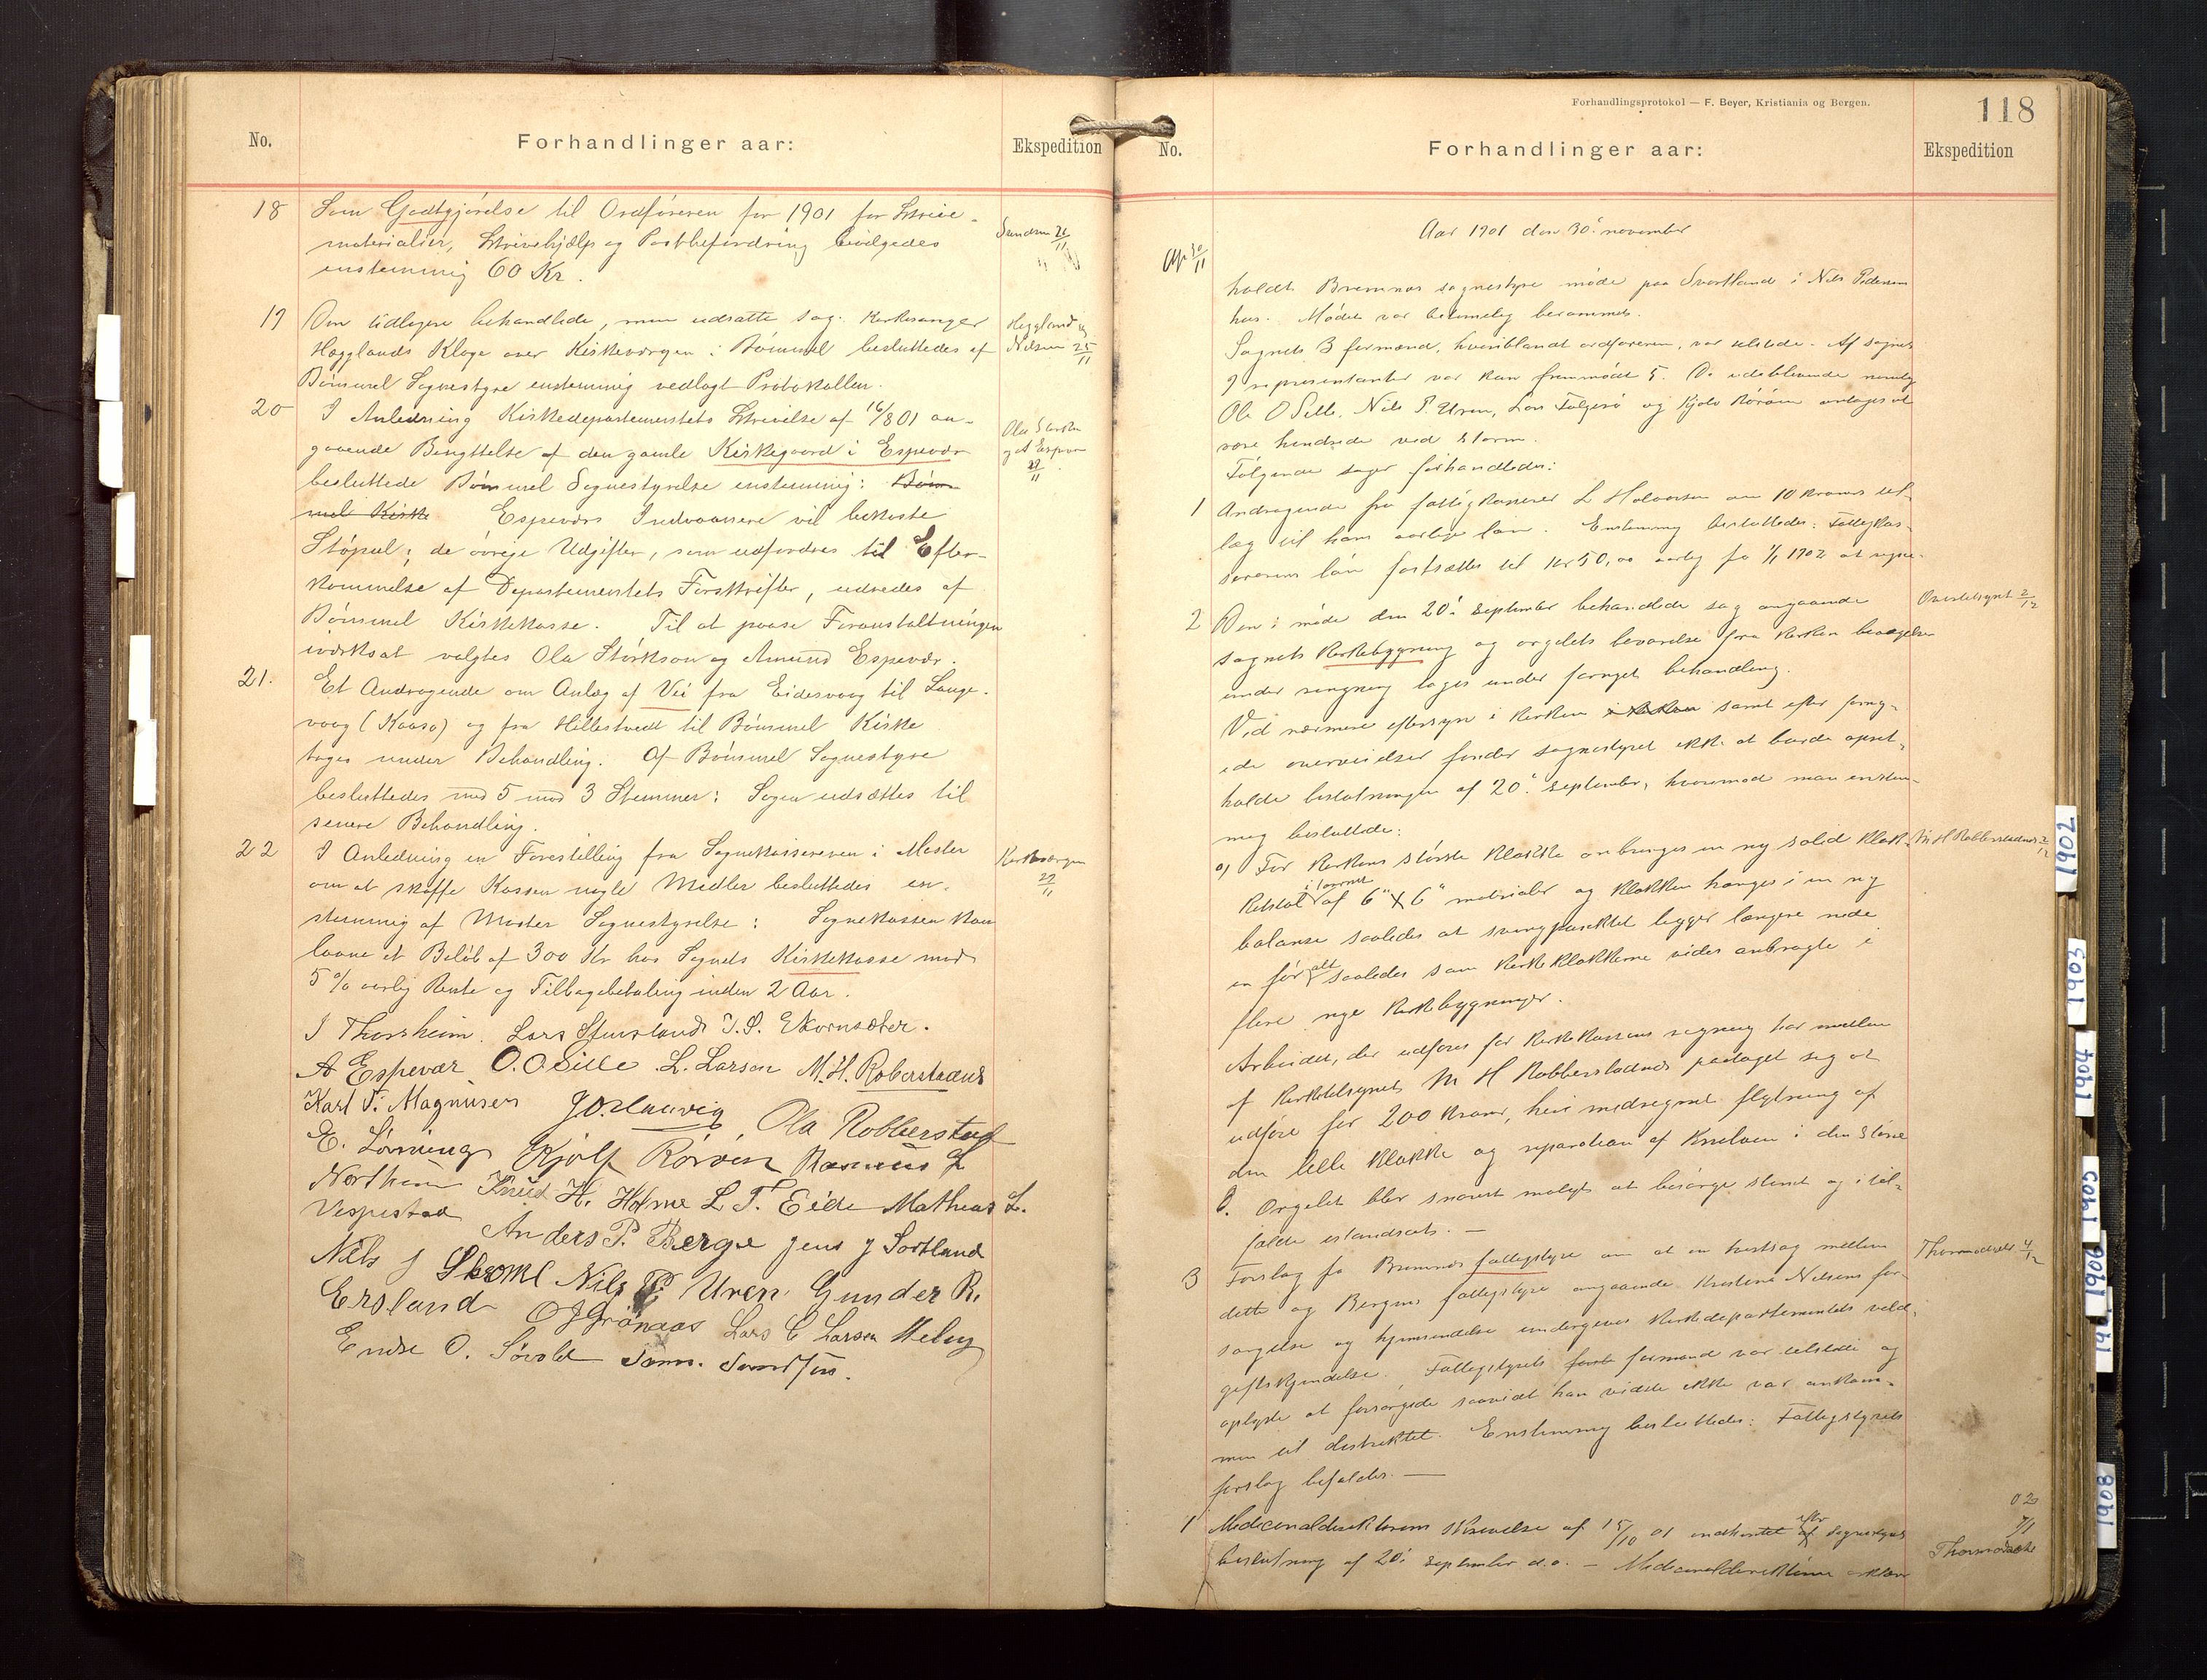 No.
Forhandlinger aar:
Ekspedition
18 Som Godtgjörelse til Ordföreren for 1901 for Skrive-
materialier, Skrivehjælp og Postbefordring bevilgedes
enstemmig 60 Kr.
19 Den tidligere behandlede, men udsatte sag: Kirkesanger
Hægglands Klage over Kirkeværgen i Bömmel besluttedes af
Bömmel Sognestyre enstemmig vedlagt Protokollen.
Heggland og
Nilsen 25/11
20 I Anledning Kirkedepartementets Skrivelse af 16/8 01 an-
gaaende Benyttelse af den gamle Kirkegaard i Espevær
besluttede Bömmel Sognestyrelse enstemmig: Böm-
mel Kirke Espeværs Indvaanere vil bekoste
Stöpul; de övrige Udgifter, som udfordres til Efter-
kommelse af Departementets Forskrifter, udredes af
Bömmel Kirkekasse. Til at paase Foranstaltningen
iværksat valgtes Ola Störkson og Amund Espevær.
21. Et Andragende om Anlæg af Vei fra Eidesvaag til Lange-
vaag (Kaasa) og fra Hillestvedt til Bömmel Kirke
toges under Behandling. Af Bömmel Sognestyre
besluttedes med 5 mod 3 Stemmer: Sagen udsættes til
senere Behandling.
22 I Anledning en Forestilling fra Sognekassereren i Moster
om at skaffe Kassen nogle Midler besluttedes en-
stemmig af Moster Sognestyrelse: Sognekassen kan
laane et Belöb af 300 Kr hos Sognets Kirkekasse mod
5 % aarlig Rente og Tilbagebetaling inden 2 Aar.
Kirkeværgen
29/11
J Thorsheim. Lars Stensland J. S. Ekornsæter.
A Espevær O. O Sille L. Larsen M. H. Robberstadnes
Karl T. Magnusen Ola Robberstad
E. Lönning Kjölf Röröen Rasmus L
Northeim Knud H. Holme L T. Eide Mathias L.
Vespestad Anders P. Berge Jens J Sortland
Nils J Nils P Uren Gunder R.
Ersland O J Grönaas Lars C Larsen Meling
Endre O. Sövold
Forhandlingsprotokol — F. Beyer, Kristiania og Bergen.
118
No.
Forhandlinger aar:
Ekspedition
Aar 1901 den 30. november
30/11
holdt Bremnes sognestyre möde paa Svortland i Nils Pedersens
hus. Mödet var betimelig berammet.
Sognets 3 formænd, hvoriblandt ordföreren, var tilstede. Af sognets
9 representanter var kun fremmödt 5. De udeblivende nemlig
Ole O Sille, Nils P. Uren, Lars Folgerö og Kjölv Röröen antages at
være hindrede ved storm.
Fölgende sager forhandledes:
1 Andragende fra fattigkasserer L Halvorsen om 10 kroners til-
læg til hans aarlige lön. Enstemmig besluttedes: Fattigkas-
sererens lön fastsættes til kr 50,00 aarlig fra 1/1 1902 at regne.
2 Den i möde den 20. september behandlede sag angaaende
sognets kirkebygning og orgelets bevarelse fra kirkens bevægelse
under ringning toges under fornyet behandling.
Ved nærmere eftersyn i kirken i kirken samt efter forny-
ede overveielser fandt sognestyret ikke at burde opret-
holde beslutningen af 20. september, hvorimod man enstem-
mig besluttede:
a) For kirkens störste klokke anbringes en ny solid klok-
kestol i taarnet af 6" X 6" materialer og klokken hænges i en ny
balanse saaledes at svingpunktet ligger længere nede
en för alt saaledes som kirkeklokkerne vides anbragte i
flere nye kirkebygninger.
M H Robberstadnes 2/12
Arbeidet, der udföres for kirkekassens regning har medlem
af kirketilsynet M H Robberstadnes paataget sig at
udföre for 200 kroner, heri medregnet flytning af
den lille klokke og reparation af knebelen i den större
b. Orgelet blir snarest muligt at besörge stemt og i til-
fælde istandsat. —
3 Forslag fra Bremnes fattigstyre om at en tvistsag mellem
dette og Bergens fattigstyre angaaende Kristine Nilsens for-
sörgelse og hjemsendelse undergives Kirkedepartementets vold-
giftskjendelse. Fattigstyrets formand var tilstede og
oplyste at forsörgede saavidt han vidste ikke var ankom-
men til distriktet. Enstemmig besluttedes: Fattigstyrets
forslag bifaldes. —
Medicinaldirektörens skrivelse af 15/10 01 indhentet efter sognestyrets
beslutning af 20. september d.a. — Medicinaldirektören erklær
1902
1903
1904
1905
1906
1908